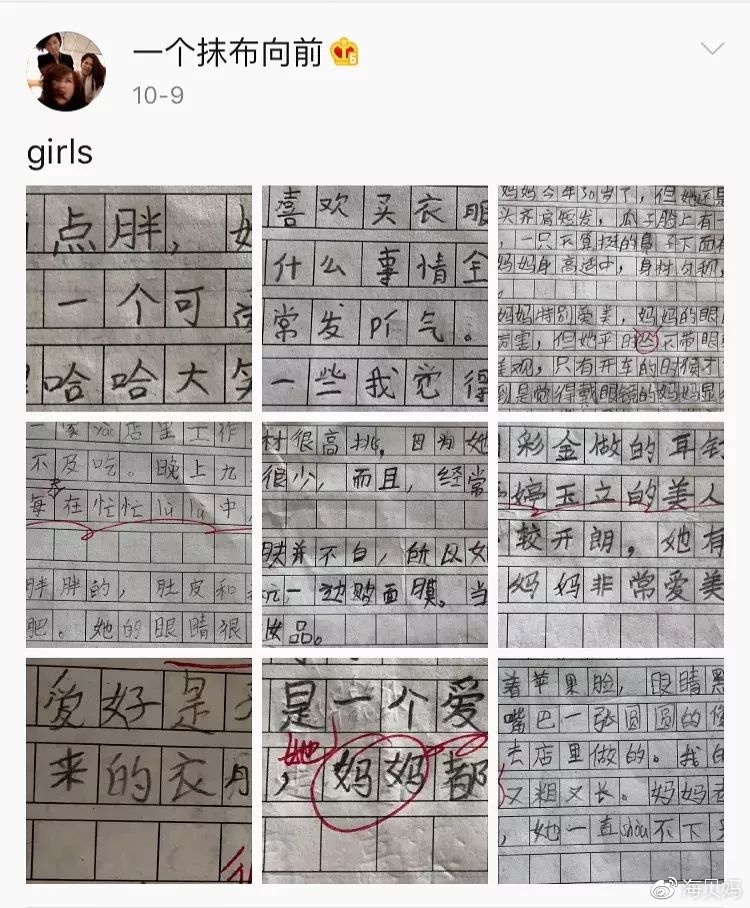 一个抹布向前
10-9
girls
点胖，
一个可
哈哈大笑
喜欢买衣服
什么事情全
常发pí气。
一些我觉得
妈妈今年30岁了，但她还是
头齐肩短发，瓜子脸上有一
，一只不算挺的鼻子下面有
妈妈身高适中，身材匀称，
妈妈特别爱美，妈妈的眼
但她平时
美观，只有开车的时候才
到是觉得戴眼镜的妈妈显得
店里工作
不及吃。晚上九
每在忙忙lù lù中，
胖胖的，肚皮和
肥。她的眼睛很
材很高挑，因为她
很少，而且，经常
肤并不白，所以女
一边贴面膜。当
妆品。
彩金做的耳钉
婷玉立的美人
较开朗，她有
妈妈非常爱美
爱好是
来的衣服
是一个爱
她
，妈妈都
着苹果脸，眼睛黑
嘴巴一张圆圆的像
去店里做的。我的
又粗又长。妈妈
，她一直shòu不下来
海贝妈